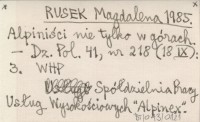 RUSEK Magdalena 1985.
Alpiniści nie tylko w górach.
- Dz. Pol. 41, nr 218 (18 IX):
3. WHP
Spółdzielnia Pracy
Usług Wysokościowych "Alpinex".